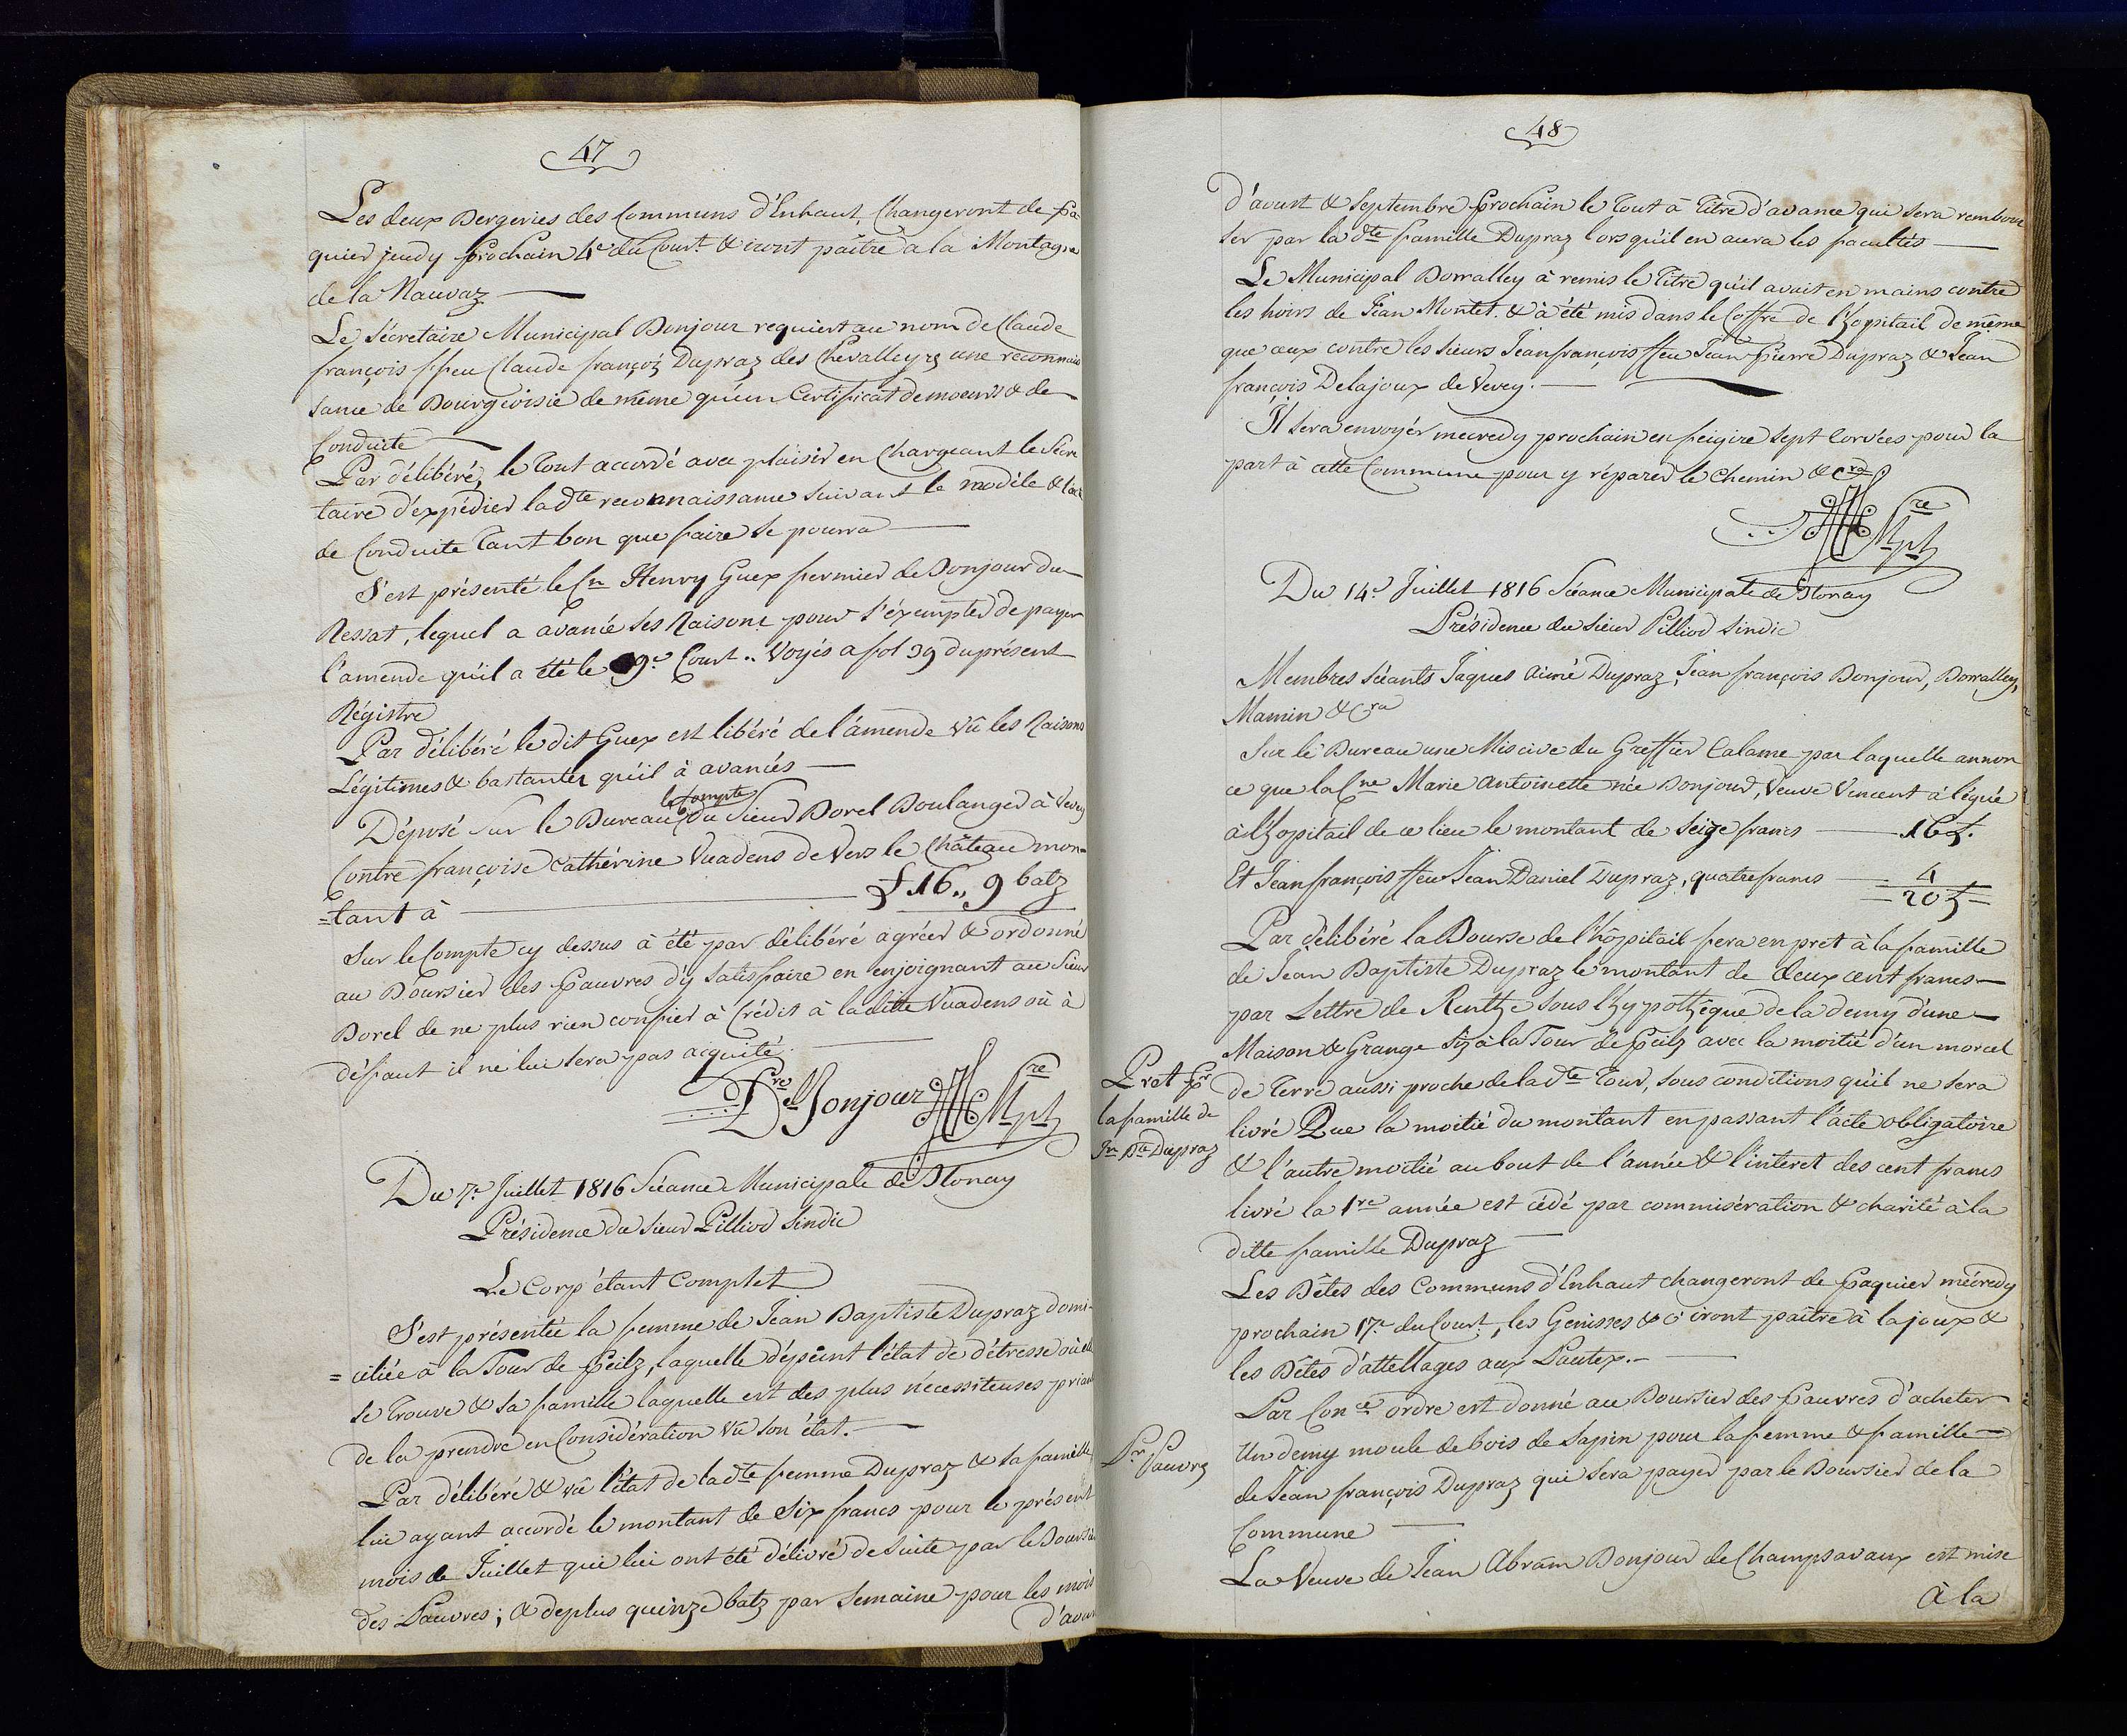 47
Les deux Bergeries des Communs d'Enhaut, Changeront de pa
quier jeudy prochain 4e du Court & iront paître à la Montagne
de la Nauvaz
Le Sécretaire Municipal Bonjour requiert au nom de Claude
françois ffeu Claude françois Dupraz des Chevalleyrs une reconnais
sance de Bourgeoisie de même qu'un Certificat de moeurs & de
Conduite
Par délibéré, le tout accordé avec plaisir en Chargeant le Secre
taire d'éxpédier la dte reconnaissance suivant le modéle & l'act
de Conduite tant bon que faire se pourra
S'est présenté le Cn Henry Guex fermier de Bonjour du
Ressat, lequel a avancé ses Raisons pour s'éxempter de payer
l'amende qu'il a été le 9e Court .. Voyés a fol 39 du présent
Régistre
Par délibéré le dit Guex est libéré de l'amende vû les Raisons
Légitimes & bastantes qu'il à avancés
le Compte
Déposé sur le Bureau du Sieur Borel Boulanger à Vevey
Contre françoise Cathérine Vuadens de Vers le Château mon=
=tant à £ 16 ,, 9 batz
Sur le Compte cy dessus à été par délibéré agréer & ordonné
au Boursier des pauvres d'y satisfaire en enjoignant au Sieur
Borel de ne plus rien confier à Crédit à la ditte Vuadens où à
défaut il ne lui sera pas acquité
Bonjour Sre Mpl
Du 7e Juillet 1816 Séance Municipale de Blonay
Présidence du Sieur Pilliod Sindic
Le Corp étant Complet
S'est présentée la femme de Jean Baptiste Dupraz domi-
=ciliée à la Tour de peilz, laquelle dépeint l'état de détresse où elle
se trouve & sa famille laquelle est des plus nécessiteuses priant
de la prendre en Considération vû son état.
Par délibéré & vû l'état de la dte femme Dupraz & sa famille
lui ayant accordé le montant de Six francs pour le présent
mois de Juillet qui lui ont été délivré de suite par le Boursier
des Pauvres; & deplus quinze batz par Semaine pour les mois
d'aoust
48
d'avust & Septembre prochain le tout à Titre d'avance qui sera rembour
ser par la dte famille Dupraz lors qu'il en aura les facultés
Le Municipal Borralley à remis le Titre qu'il avait en mains contre
les hoirs de Jean Montet. & à été mis dans le Coffre de l'hopitail de même
que ceux contre les Sieurs Jeanfrançois ffeu Jean Pierre Dupraz & Jean
françois Delajoux de Vevey.
Il sera envoyér mecredy prochain en feigire sept Corvées pour la
part à cette Commune pour y réparer le chemin & Cra
Sre Mpl
Du 14e Juillet 1816 Séance Municipale de Blonay
Présidence du Sieur Pilliod Sindic
Membres Séants Jaques Aimé Dupraz, Jean françois Bonjour, Borralley,
Mamin & Cra
Sur le Bureau une Miscive du Greffier Calame par laquelle annon
ce que la Cne Marie Antoinette née Bonjour, Veuve Vincent à légué
à l'hopitail de ce lieu le montant de Seize francs 16 f.
Et Jeanfrançois ffeu Jean Daniel Dupraz, quatre francs 4
20 f
Par délibéré la Bourse de l'hôpitail fera en pret à la famille
de Jean Baptiste Dupraz le montant de deux cent francs
par Lettre de Renthe sous l'hypothêque de la demy d'une
Maison & Grange siz à la Tour de Peilz avec la moitié d'un morcel
Pret pr
la famille de
Jn Bte Dupraz
de Terre aussi proche de la dte Tour, sous conditions qu'il ne sera
livré Que la moitié du montant en passant l'acte obligatoire
& l'autre moitié au bout de l'année & l'interet des cent francs
livré la 1re année est cédé par commisération & charité à la
ditte famille Dupraz
Les Bêtes des Communs d'Enhaut changeront de paquier mécredy
prochain 17e du Court, les Genisses & ct iront paître à la joux &
les Bêtes d'attellages aux Pautex.
Par Conce ordre est donné au Boursier des pauvres d'acheter
Pr Pauvrs
Un demy moule de bois de Sapin pour la femme & famille
de Jean françois Dupraz qui sera payer par le Boursier de la
Commune
La Veuve de Jean Abram Bonjour de Champsavaux est mise
à la